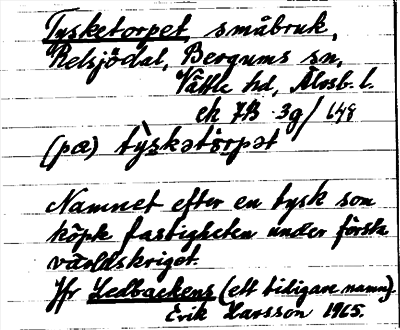 Tysketorpet, småbruk,
Relsjödal, Bergums sn,
Vättle hd, Älvsb. l.
ek 7B 3g/ 648
(pœ) tỳskətɔ̀rpət
Namnet efter en tysk som
köpte fastigheten under första
världskriget.
Jfr Ledbackens (ett tidigare namn)
Erik Larsson 1965.